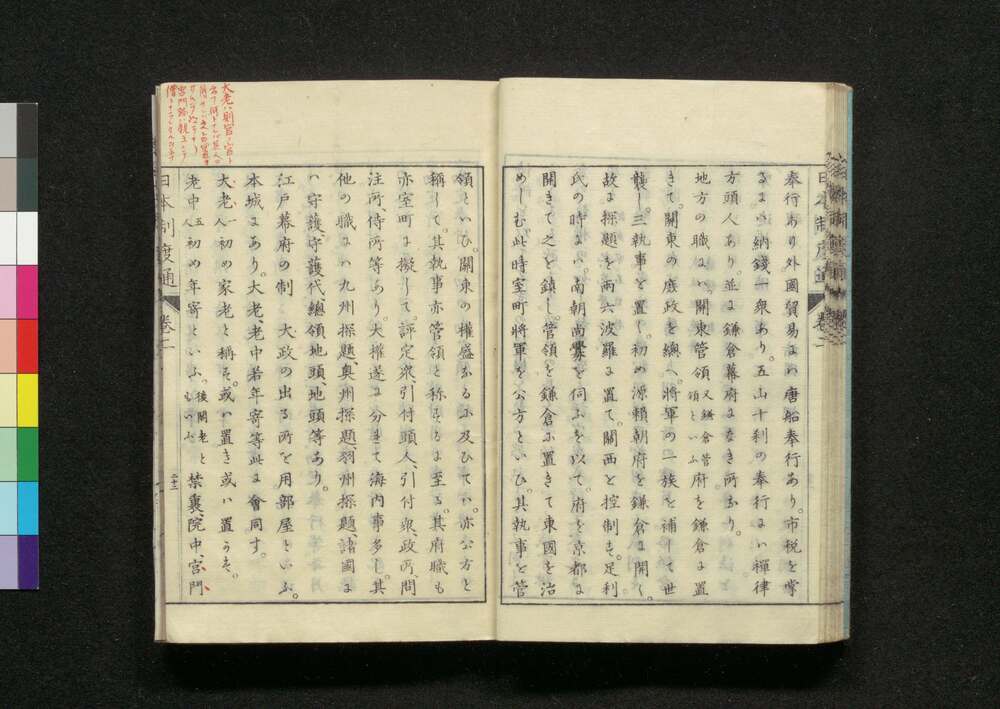 奉行あり。外國貿易には唐船奉行あり。市税を掌
るには納錢一衆あり。五山十刹の奉行には禪律
方頭人あり。並に鎌倉幕府になき所なり。
地方の職には、關東管領又鎌倉管領といふ府を鎌倉に置
きて。關東の庶政を總へ。將軍の一族を補して世
襲し。三執事を置く。初め源賴朝府を鎌倉に開く。
故に探題を兩六波羅に置て。關西と控制す。足利
氏の時には。南朝尚釁を伺ふを以て。府を京都に
開きて之を鎭し。管領を鎌倉に置きて東國を治
めしむ此時室町將軍を公方といひ。其執事を管
領といひ。關東の權盛なるに及ひては。亦公方と
稱して。其執事亦管領と称するに至る。其府職も
亦室町に擬して。評定衆、引付頭人、引付衆、政所、問
注所、侍所等あり。大權遂に分れて海內事多し。其
他の職には九州探題、奥州探題、羽州探題、諸國に
は守護、守護代、總領地頭、地頭等あり。
江戸幕府の制 大政の出る所を用部屋といふ。
本城にあり。大老、老中、若年寄等此に會同す。
大老一人初め家老と稱す。或は置き或は置かす。
老中五人初め年寄といふ。後閣老ともいふ 禁裏、院中、宮門
日本制度通 卷二
二十二
日本制度通 卷二